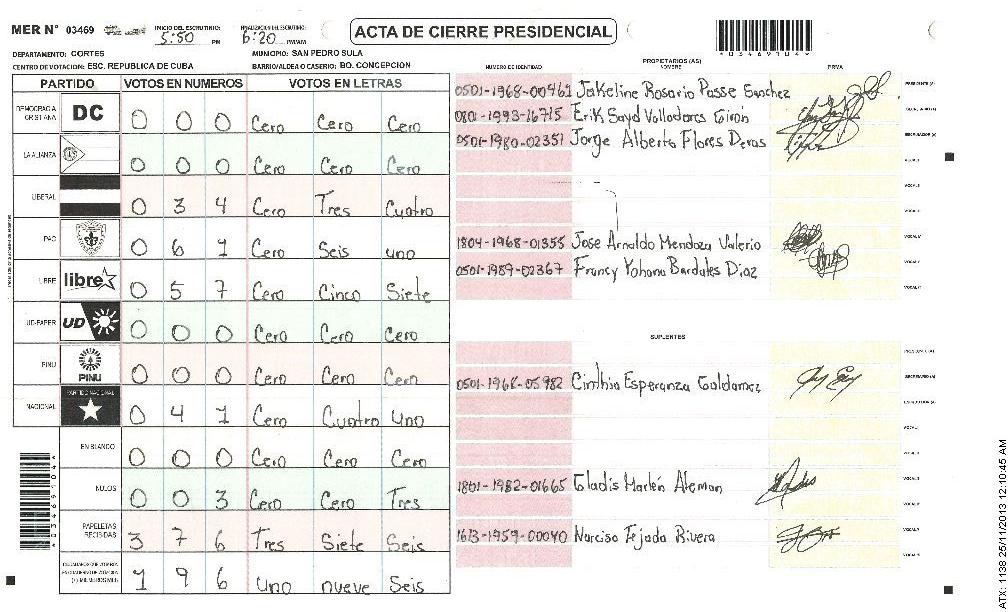 MER N° 03469 INICIO DEL ESCRUTINIO: 5:50 PM FINALIZACION DEL ESCRUTINIO: 6:20 PM/AM
ACTA DE CIERRE PRESIDENCIAL
*03469104*
DEPARTAMENTO: CORTES MUNICIPIO: SAN PEDRO SULA
CENTRO DE VOTACION: ESC. REPUBLICA DE CUBA BARRIO/ALDEA O CASERIO: BO. CONCEPCION
PARTIDO VOTOS EN NUMEROS VOTOS EN LETRAS
DEMOCRACIA CRISTIANA DC 0 0 0 Cero Cero Cero
LA ALIANZA 0 0 0 Cero Cero Cero
LIBERAL 0 3 4 Cero Tres Cuatro
PAC 0 6 1 Cero Seis uno
LIBRE libre 0 5 7 Cero Cinco Siete
UD-FAPER UD 0 0 0 Cero Cero Cero
PINU PINU 0 0 0 Cero Cero Cero
NACIONAL PARTIDO NACIONAL 0 4 1 Cero Cuatro Uno
EN BLANCO 0 0 0 Cero Cero Cero
NULOS 0 0 3 Cero Cero Tres
PAPELETAS RECIBIDAS 3 7 6 Tres Siete Seis
1 9 6 uno nueve Seis
PROPIETARIOS (AS)
NUMERO DE IDENTIDAD NOMBRE FIRMA
0501-1968-00461 Jakeline Rosario Posse Sanchez
0801-1993-16715 Erik Sayd Valladares Giron
0501-1980-02351 Jorge Alberto Flores Deras
1804-1968-01355 Jose Arnaldo Mendoza Valerio
0501-1989-02367 Francy Yohana Bardales Diaz
SUPLENTES
0501-1966-05982 Cinthia Esperanza Galdamez
1801-1982-01665 Gladis Marlén Aleman
1613-1959-00040 Narciso Tejada Rivera
ATX: 1138 25/11/2013 12:10:45 AM